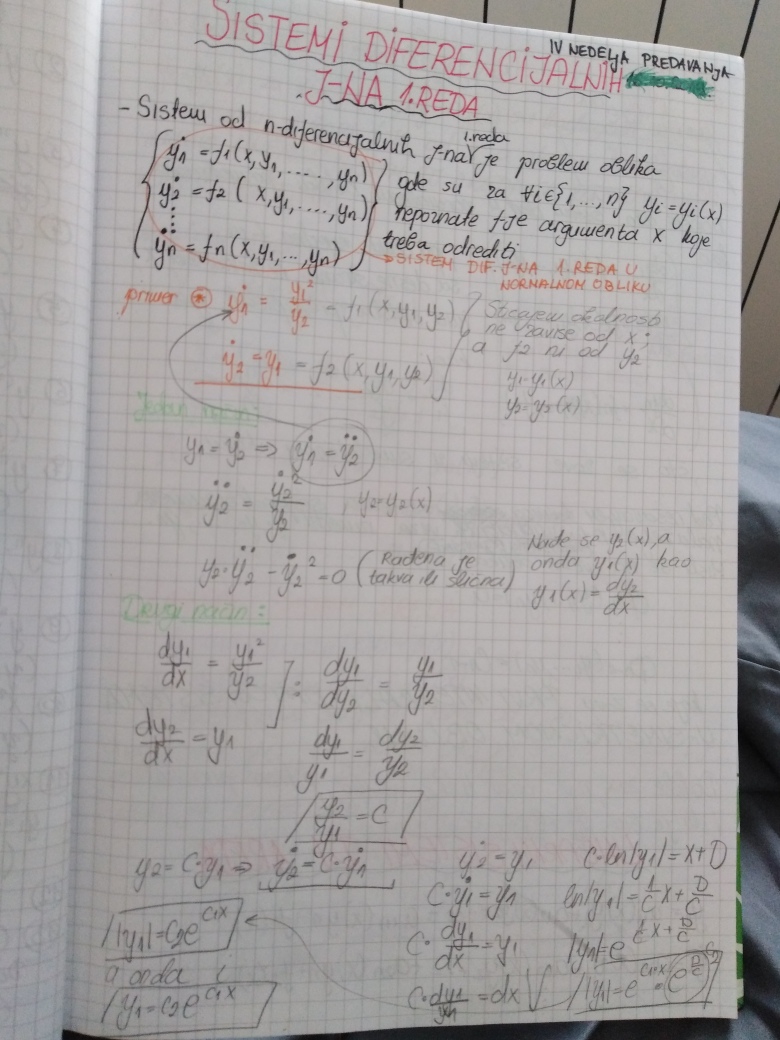 IV NEDELJA PREDAVANJA
SISTEMI DIFERENCIJALNIH
J-NA 1.REDA
- Sistem od n-diferencijalnih j-na 1.reda je problem oblika
ẏ1 = f1(x, y1, ....., yn)
ẏ2 = f2(x, y1, ....., yn)
⋮
ẏn = fn(x, y1, ..., yn)
gde su za ∀i∈{1,...,n} yi = yi(x)
nepoznate f-je argumenta x koje
treba odrediti
→ SISTEM DIF. J-NA 1.REDA U
NORMALNOM OBLIKU
primer ⊛ ẏ1 = y1²/y2 = f1(x, y1, y2)
ẏ2 = y1 = f2(x, y1, y2)
Sticajem okolnosti
ne zavise od x,
a f2 ni od y2
y1=y1(x)
y2=y2(x)
Jedan način:
y1 = ẏ2 ⇒ ẏ1 = ÿ2
ÿ2 = ẏ2²/y2 , y2=y2(x)
y2·ÿ2 - ẏ2² = 0 (Rađena je
takva ili slična)
Nađe se y2(x), a
onda y1(x) kao
y1(x) = dy2/dx
Drugi način:
dy1/dx = y1²/y2
dy2/dx = y1
] : dy1/dy2 = y1/y2
dy1/y1 = dy2/y2
y2/y1 = C
y2 = C·y1 ⇒ ẏ2 = C·ẏ1
ẏ2 = y1
C·ẏ1 = y1
C·dy1/dx = y1
C·dy1/y1 = dx
C·ln|y1| = x+D
ln|y1| = 1/C x + D/C
|y1| = e^(1/C x + D/C)
|y1| = e^(C1x) · e^(D/C) C2
|y1| = C2e^(C1x)
a onda i
y1 = C2e^(C1x)